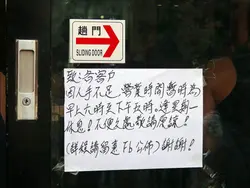 趟門
SLIDING DOOR
致：各客户
因人手不足，營業時間暫時為
早上六時至下午五時。逢星期一
休息！不便之處敬請原諒！
(請留意 Fb 公佈) 謝謝！